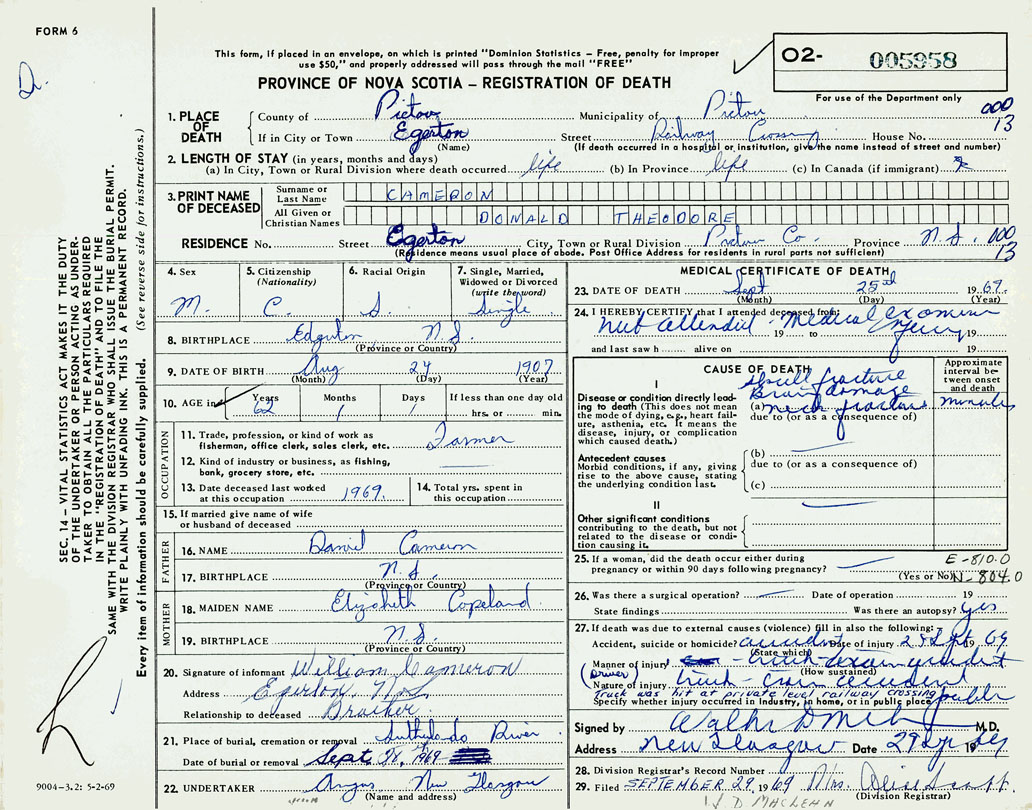 FORM 6
This form, if placed in an envelope, on which is printed "Dominion Statistics — Free, penalty for improper
use $50," and properly addressed will pass through the mail "FREE"
O2- 005958
For use of the Department only
PROVINCE OF NOVA SCOTIA — REGISTRATION OF DEATH
1. PLACE OF DEATH
County of Pictou Municipality of Pictou 000
If in City or Town Egerton Street Railway Crossing House No. 13
(Name) (If death occurred in a hospital or institution, give the name instead of street and number)
2. LENGTH OF STAY (in years, months and days)
(a) In City, Town or Rural Division where death occurred life (b) In Province life (c) In Canada (if immigrant)
3. PRINT NAME OF DECEASED
Surname or Last Name CAMERON
All Given or Christian Names DONALD THEODORE
RESIDENCE No. Street Egerton City, Town or Rural Division Pictou Co. Province N.S. 000
(Residence means usual place of abode. Post Office Address for residents in rural parts not sufficient) 13
4. Sex M.
5. Citizenship (Nationality) C.
6. Racial Origin S.
7. Single, Married, Widowed or Divorced (write the word) Single
8. BIRTHPLACE Edgerton N.S.
(Province or Country)
9. DATE OF BIRTH Aug 24 1907
(Month) (Day) (Year)
10. AGE in Years 62 Months 1 Days 1 If less than one day old
hrs. or min.
OCCUPATION
11. Trade, profession, or kind of work as
fisherman, office clerk, sales clerk, etc. Farmer
12. Kind of industry or business, as fishing,
bank, grocery store, etc.
13. Date deceased last worked
at this occupation 1969.
14. Total yrs. spent in
this occupation
15. If married give name of wife
or husband of deceased
FATHER
16. NAME Daniel Cameron
17. BIRTHPLACE N.S.
(Province or Country)
MOTHER
18. MAIDEN NAME Elizabeth Copeland
19. BIRTHPLACE N.S.
(Province or Country)
20. Signature of informant William Cameron
Address Egerton, N.S.
Relationship to deceased Brother.
21. Place of burial, cremation or removal River
Date of burial or removal Sept 1969
22. UNDERTAKER Angus New Glasgow
(Name and address)
MEDICAL CERTIFICATE OF DEATH
23. DATE OF DEATH Sept 25th 1969.
(Month) (Day) (Year)
24. I HEREBY CERTIFY that I attended deceased from:
not attended - Medical examiner
19 to 19
and last saw h alive on 19
CAUSE OF DEATH
Approximate interval between onset and death
I
Disease or condition directly leading to death (This does not mean the mode of dying, e.g., heart failure, asthenia, etc. It means the disease, injury, or complication which caused death.)
Skull fracture
Brain damage
(a) neck fracture minutes
due to (or as a consequence of)
Antecedent causes
Morbid conditions, if any, giving rise to the above cause, stating the underlying condition last.
(b)
due to (or as a consequence of)
(c)
II
Other significant conditions
contributing to the death, but not related to the disease or condition causing it.
25. If a woman, did the death occur either during E-810.0
pregnancy or within 90 days following pregnancy?
(Yes or No) N-804.0
26. Was there a surgical operation? Date of operation 19
State findings Was there an autopsy? yes
27. If death was due to external causes (violence) fill in also the following:
Accident, suicide or homicide? accident Date of injury 25 Sept 1969
(State which)
Manner of injury - truck-train accident
(Driver) (How sustained)
Nature of injury truck - train accident
Truck was hit at private level railway crossing
Specify whether injury occurred in industry, in home, or in public place public
Signed by M.D.
Address New Glasgow Date 29 Sept 1969
28. Division Registrar's Record Number
29. Filed SEPTEMBER 29, 1969 Mrs. Alice
(Division Registrar)
D MACLEAN
SEC. 14 — VITAL STATISTICS ACT MAKES IT THE DUTY
OF THE UNDERTAKER OR PERSON ACTING AS UNDER-
TAKER TO OBTAIN ALL THE PARTICULARS REQUIRED
IN THE "REGISTRATION OF DEATH" AND TO FILE THE
SAME WITH THE DIVISION REGISTRAR WHO SHALL ISSUE THE BURIAL PERMIT.
WRITE PLAINLY WITH UNFADING INK. THIS IS A PERMANENT RECORD.
Every item of information should be carefully supplied. (See reverse side for instructions.)
9004—3.2: 5-2-69